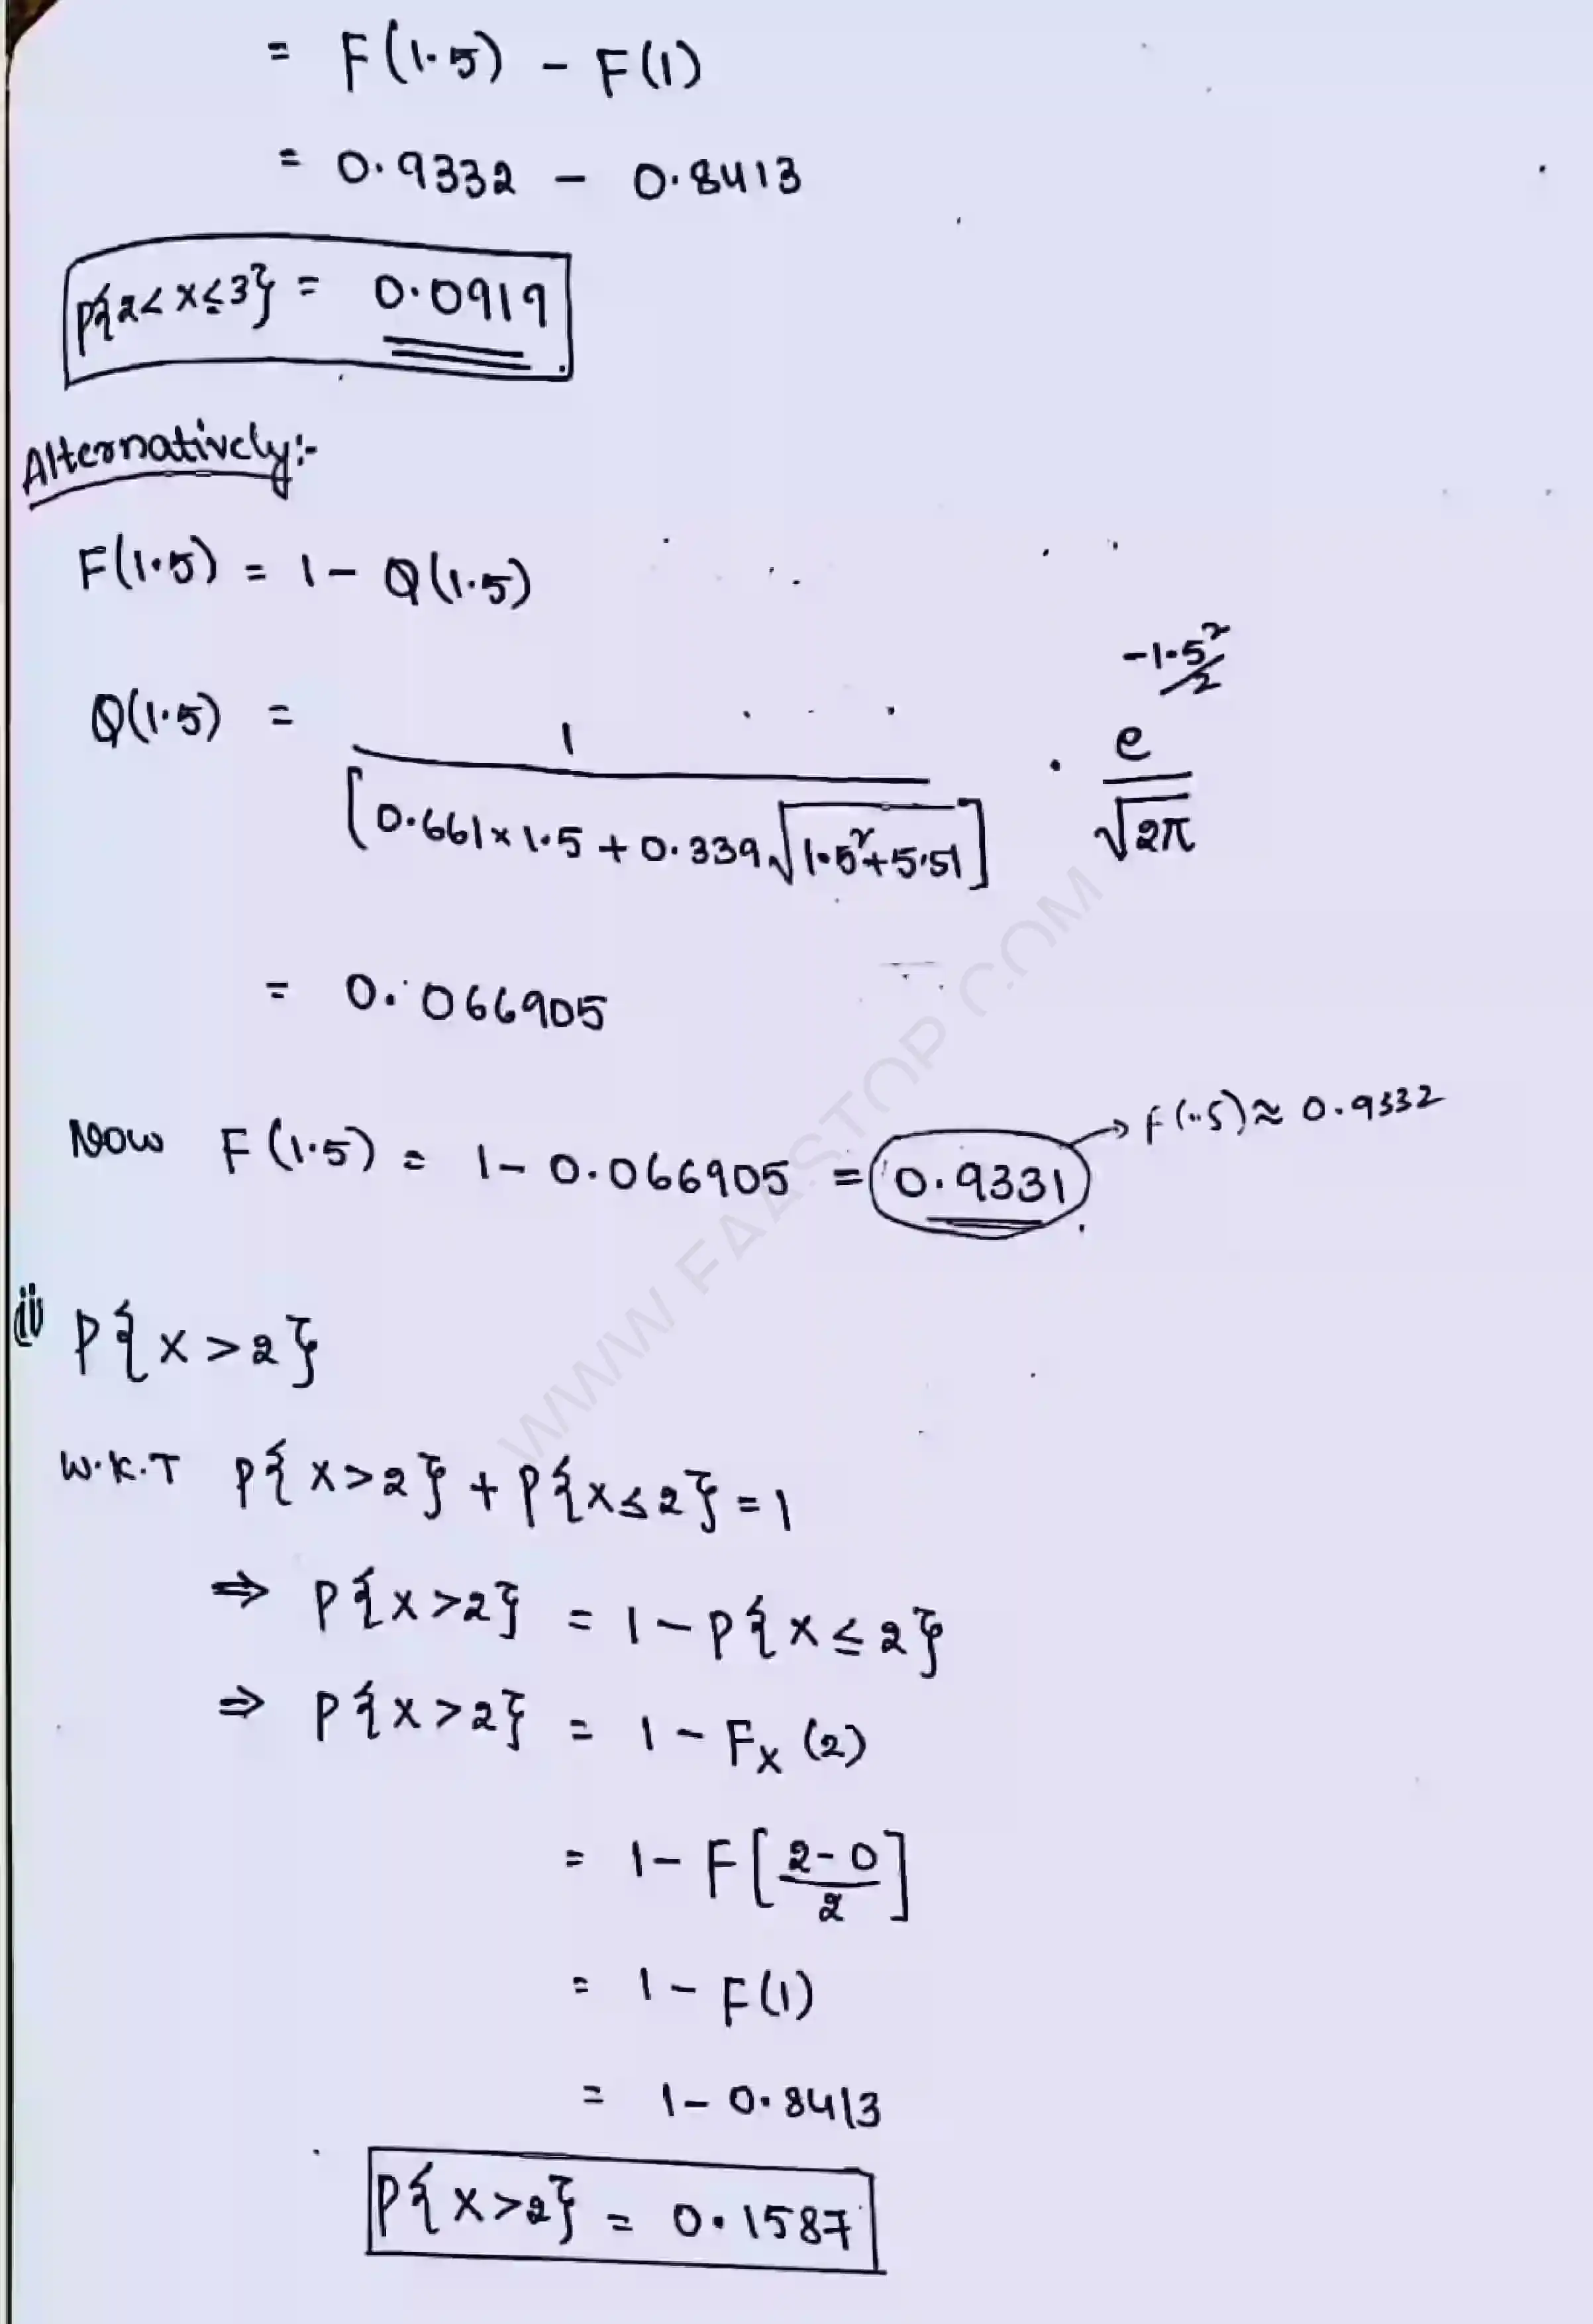 = F(1.5) - F(1)
= 0.9332 - 0.8413
P{2<X≤3} = 0.0919
Alternatively:-
F(1.5) = 1 - Q(1.5)
Q(1.5) = 1 / [0.661×1.5 + 0.339√(1.5²+5.51)] · e^(-1.5²/2) / √(2π)
= 0.066905
Now F(1.5) = 1 - 0.066905 = 0.9331 → F(1.5) ≈ 0.9332
(ii) P{X>2}
W.K.T P{X>2} + P{X≤2} = 1
⇒ P{X>2} = 1 - P{X≤2}
⇒ P{X>2} = 1 - F_X(2)
= 1 - F[(2-0)/2]
= 1 - F(1)
= 1 - 0.8413
P{X>2} = 0.1587